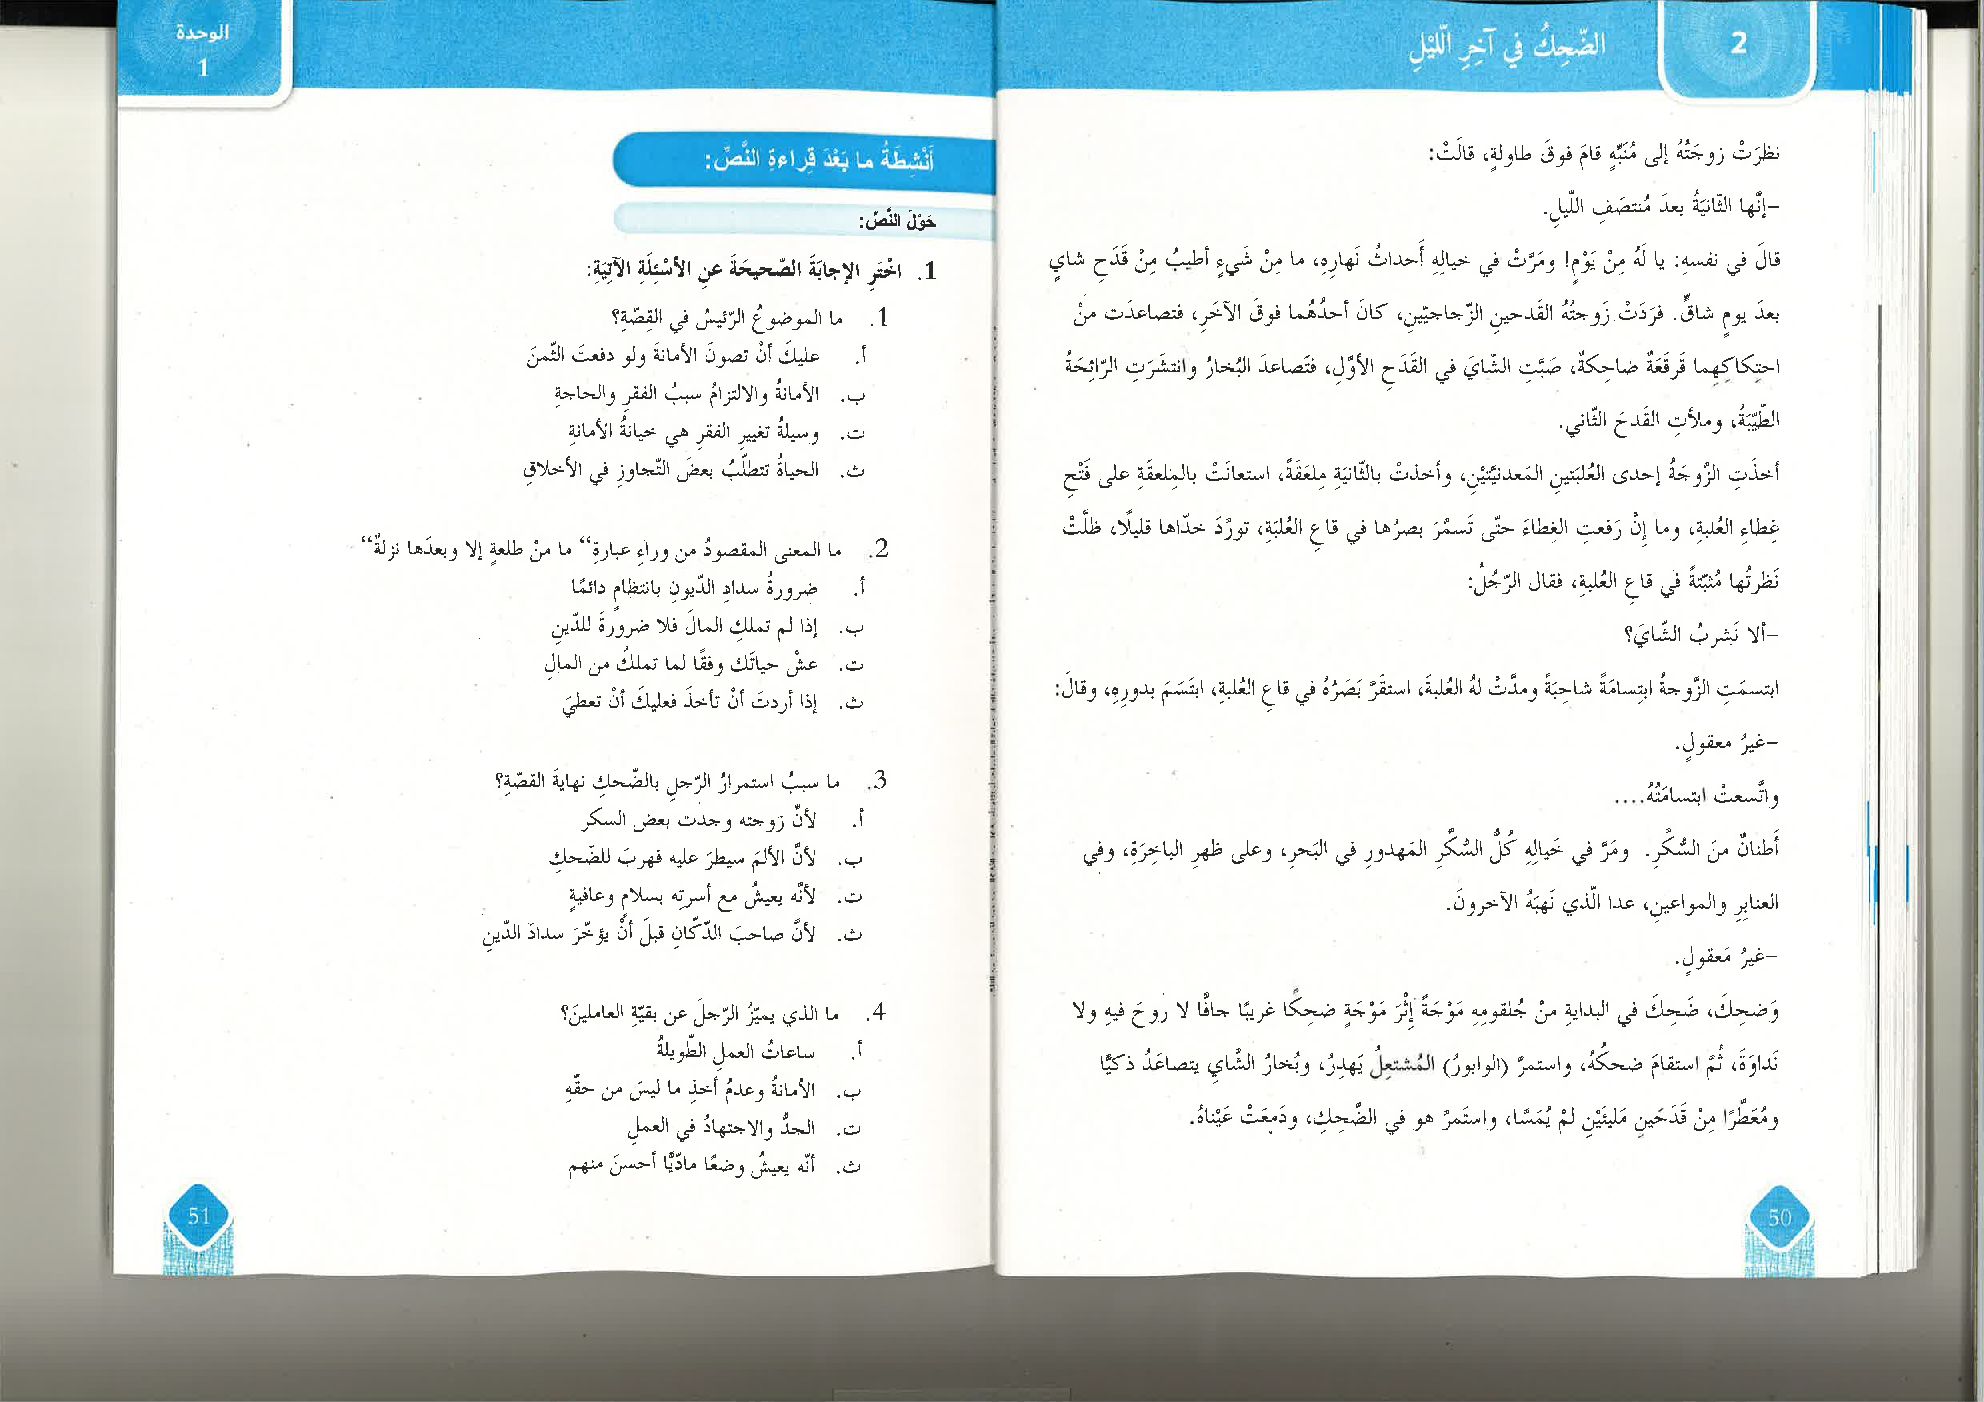 2
الضّحِكُ في آخِرِ اللّيْلِ
نظرَتْ زوجَتُهُ إلى مُنَبِّهٍ قامَ فوقَ طاولةٍ، قالَتْ:
–إنَّها الثّانيَةُ بعدَ مُنتصَفِ اللّيلِ.
قالَ في نفسهِ: يا لَهُ مِنْ يَوْمٍ! ومَرَّتْ في خيالِهِ أَحداثُ نَهارِهِ، ما مِنْ شَيءٍ أطيبُ مِنْ قَدَحِ شايٍ
بعدَ يومٍ شاقٍّ. فرَدَتْ زَوجتُهُ القَدحينِ الزّجاجيّينِ، كانَ أحدُهُما فوقَ الآخَرِ، فتصاعدَت منْ
احتِكاكِهِما قَرقَعَةٌ ضاحِكةٌ، صَبَّتِ الشّايَ في القَدَحِ الأوَّلِ، فتَصاعدَ البُخارُ وانتشَرَتِ الرّائِحَةُ
الطّيّبَةُ، وملأتِ القَدحَ الثّاني.
أخذَتِ الزّوجَةُ إحدى العُلبَتينِ المَعدنيَّتيْنِ، وأخذتْ بالثّانيَةِ مِلعَقَةً، استعانَتْ بالمِلعقَةِ على فَتْحِ
غِطاءِ العُلبةِ، وما إِنْ رَفعتِ الغِطاءَ حتّى تَسمَّرَ بصرُها في قاعِ العُلبَةِ، تورَّدَ خدّاها قليلًا، ظلَّتْ
نَظرتُها مُثبّتةً في قاعِ العُلبةِ، فقال الرّجُلُ:
–ألا نَشربُ الشّايَ؟
ابتسمَتِ الزَّوجةُ ابتِسامَةً شاحِبَةً ومدَّتْ لهُ العُلبةَ، استقَرَّ بَصَرُهُ في قاعِ العُلبةِ، ابتَسَمَ بدورِهِ، وقالَ:
–غيرُ معقولٍ.
واتَّسعتْ ابتسامَتُهُ....
أَطنانٌ منَ السُّكَّرِ. ومَرَّ في خَيالِهِ كُلُّ السُّكَّرِ المَهدورِ في البَحرِ، وعلى ظهرِ الباخِرَةِ، وفي
العنابِرِ والمواعينِ، عدا الّذي نَهبَهُ الآخرونَ.
–غيرُ مَعقولٍ.
وَضحِكَ، ضَحِكَ في البدايةِ منْ حُلقومِهِ مَوْجَةً إِثْرَ مَوْجَةٍ ضحِكًا غريبًا جافًّا لا روحَ فيهِ ولا
نَداوَةَ، ثُمَّ استقامَ ضحكُهُ، واستمرَّ (الوابورُ) المُشتعِلُ يَهدِرُ، وبُخارُ الشّايِ يتصاعَدُ ذكيًّا
ومُعَطَّرًا مِنْ قَدَحَينِ مَليئَيْنِ لمْ يُمَسَّا، واستَمرَّ هو في الضَّحِكِ، ودَمِعَتْ عَيْناهُ.
50
الوحدة
1
أَنْشِطَةُ ما بَعْدَ قِراءةِ النَّصِّ:
حَوْلَ النَّصِّ:
1. اخْتَرِ الإجابَةَ الصّحيحَةَ عنِ الأسْئِلَةِ الآتِيَةِ:
1. ما الموضوعُ الرّئيسُ في القِصّةِ؟
أ. عليكَ أنْ تصونَ الأمانةَ ولو دفعتَ الثّمنَ
ب. الأمانةُ والالتزامُ سببُ الفقرِ والحاجةِ
ت. وسيلةُ تغييرِ الفقرِ هي خيانةُ الأمانةِ
ث. الحياةُ تتطلّبُ بعضَ التّجاوزِ في الأخلاقِ
2. ما المعنى المقصودُ من وراءِ عبارةِ“ ما منْ طلعةٍ إلا وبعدَها نزلةٌ“
أ. ضرورةُ سدادِ الدّيونِ بانتظامٍ دائمًا
ب. إذا لم تملكِ المالَ فلا ضرورةَ للدّينِ
ت. عشْ حياتَك وفقًا لما تملكُ من المالِ
ث. إذا أردتَ أنْ تأخذَ فعليكَ أنْ تعطيَ
3. ما سببُ استمرارُ الرّجلِ بالضّحكِ نهايةَ القصّةِ؟
أ. لأنّ زوجته وجدت بعض السكر
ب. لأنَّ الألمَ سيطرَ عليه فهربَ للضّحكِ
ت. لأنّه يعيشُ مع أسرتِه بسلامٍ وعافيةٍ
ث. لأنَّ صاحبَ الدّكّانِ قبلَ أنْ يؤخّرَ سدادَ الدّينِ
4. ما الذي يميّزُ الرّجلَ عن بقيّةِ العاملينَ؟
أ. ساعاتُ العملِ الطّويلةُ
ب. الأمانةُ وعدمُ أخذِ ما ليسَ من حقّهِ
ت. الجدُّ والاجتهادُ في العملِ
ث. أنّه يعيشُ وضعًا مادّيًّا أحسنَ منهم
51